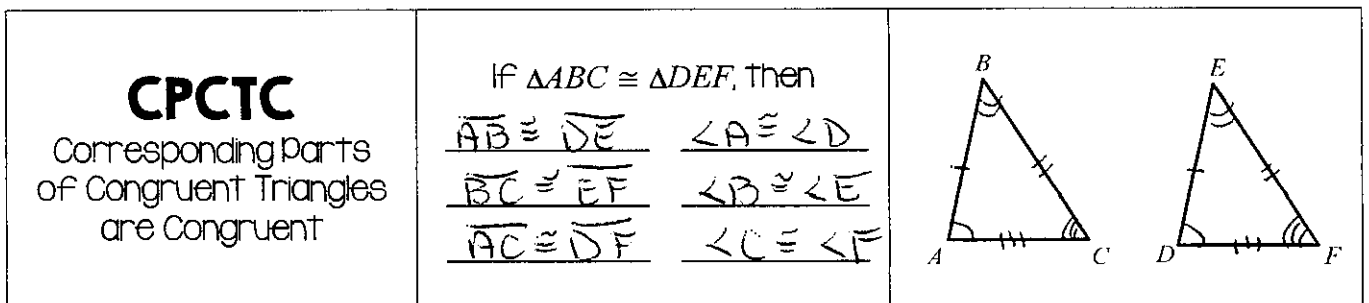 CPCTC
Corresponding Parts
of Congruent Triangles
are Congruent
If ΔABC ≅ ΔDEF, then
A̅B̅ ≅ D̅E̅ ∠A ≅ ∠D
B̅C̅ ≅ E̅F̅ ∠B ≅ ∠E
A̅C̅ ≅ D̅F̅ ∠C ≅ ∠F
B E
A C D F